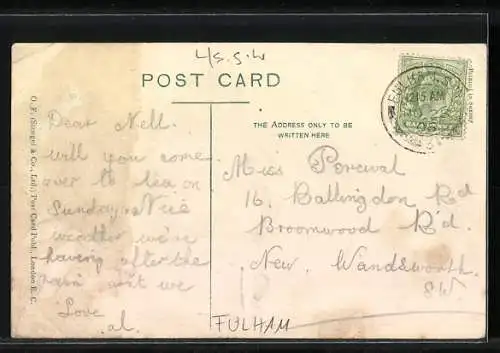 4/5.S.W
POST CARD
THE ADDRESS ONLY TO BE
WRITTEN HERE
FULHAM.S.W
12.15 AM
05
Dear Nell.
will you come
over to tea on
Sunday. Nice
weather we're
having after the
rain isn't we
Love
al.
Miss Percival
16. Ballingdon Rd
Broomwood R'd.
New. Wandsworth
SW.
FULHAM
O. F. (Stiepel & Co., Ltd.) Post Card Publ., London E. C.
Printed in Saxony